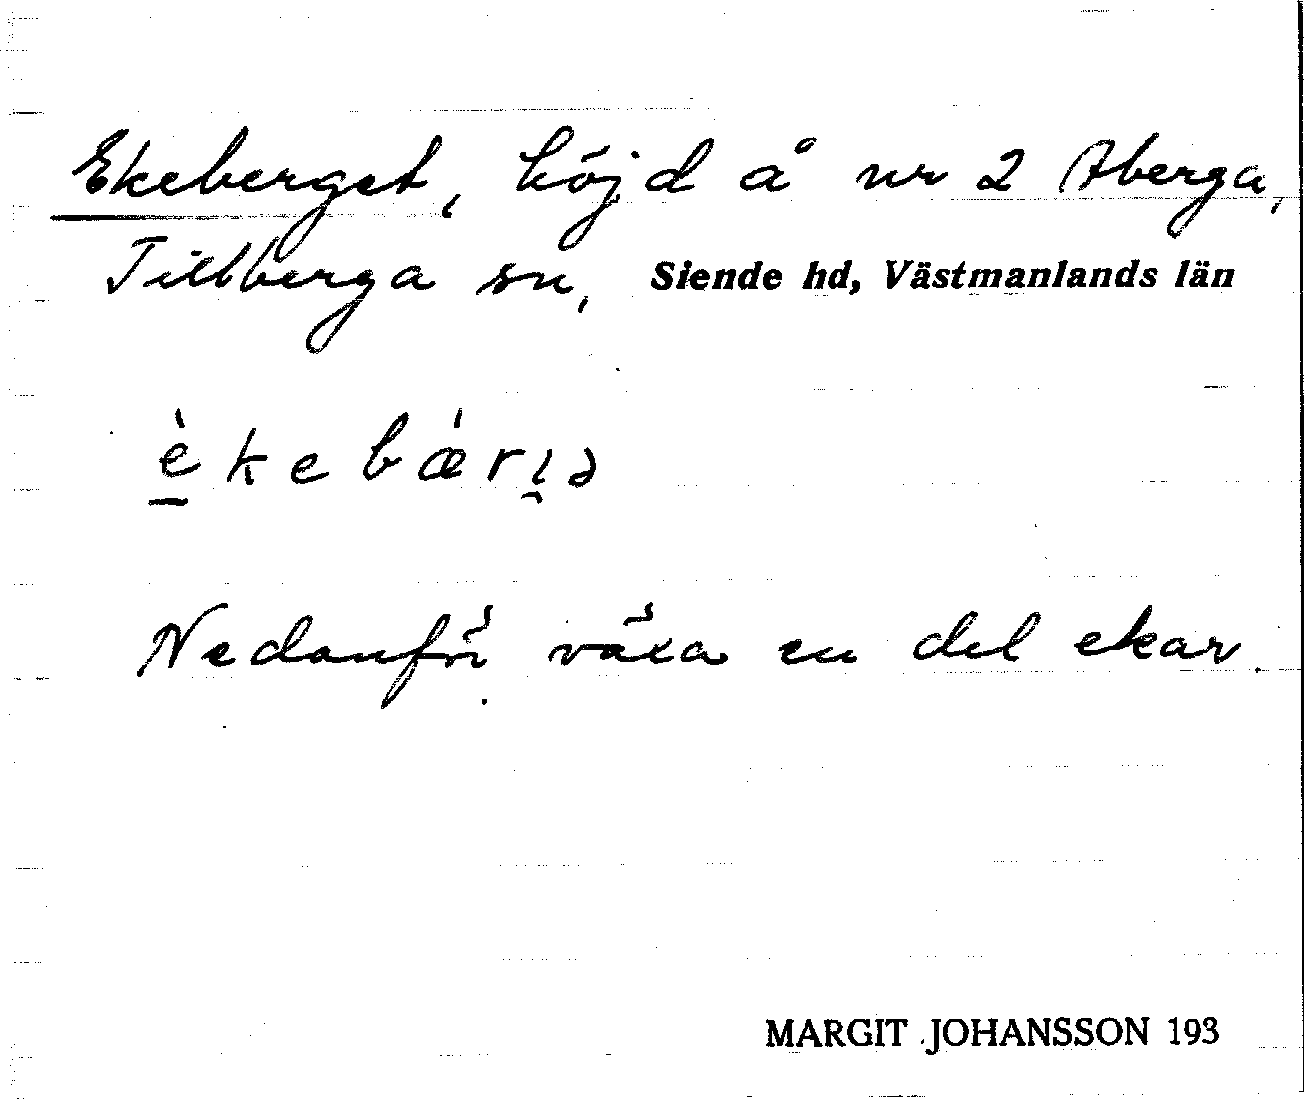 Ekeberget, höjd å nr 2 Åberga,
Tillberga sn, Siende hd, Västmanlands län
è̱kebǽri̯ə
Nedanför växa en del ekar.
MARGIT JOHANSSON 193